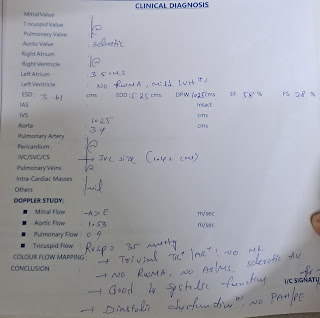 CLINICAL DIAGNOSIS
Mitral Valve
Tricuspid Valve
Pulmonary Valve
Aortic Valve sclerotic
Right Atrium
Right Ventricle
Left Atrium 3.5 cms
Left Ventricle : NO RWMA, mild LVH
ESD 3.61 cms EDD 5.25 cms DPW 1.025 cms EF 58 % FS 28 %
IAS Intact
IVS 1.025 cms
Aorta 3.4 cms
Pulmonary Artery
Pericardium
IVC/SVC/CS → IVC size (1.42 cms)
Pulmonary Veins
Intra-Cardiac Masses
Others nil
DOPPLER STUDY:
■ Mitral Flow : A>E m/sec
■ Aortic Flow : 1.53 m/sec
■ Pulmonary Flow : 0.9
■ Tricuspid Flow : RVSP: 35 mmHg
COLOUR FLOW MAPPING → Trivial TR / AR, NO MR
CONCLUSION → NO RWMA, NO AS/MS, sclerotic AV
→ Good LV systolic function
I/C SIGNATU
→ Diastolic dysfunction, NO PAH/PE